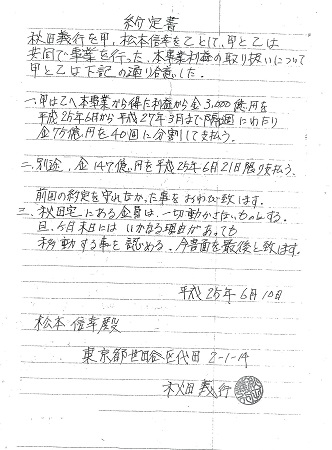 約定書
秋田義行を甲、松本信幸を乙として、甲と乙は
共同で事業を行った、本事業利益の取り扱いについて
甲と乙は下記の通り合意した。
一、甲は乙へ本事業から得た利益から金3,000億円を
平成25年6月から平成27年3月まで隔週にわたり
金75億円を40回に分割して支払う。
二、別途、金147億円を平成25年6月21日限り支払う。
前回の約定を守れなかった事をおわび致します。
三、秋田宅にある全員は一切動かさないものとする。
但、6月末日にはいかなる理由があっても
移動する事を認める。今書面を最後と致します。
平成25年6月10日
松本信幸殿
東京都世田谷区代田2-1-14
秋田義行